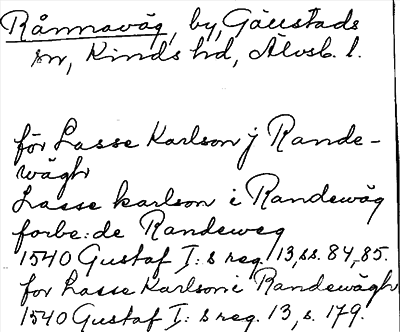 Rånnaväg, by, Gällstads
sn, Kinds hd, Älvsb. l.
för Lasse Karlson j Rande-
wägh
Lasse karlson i Randewäg
forbe:de Randeweg
1540 Gustaf I:s reg. 13, ss. 84, 85.
for Lasse Karlson i Randewägh
1540 Gustaf I:s reg. 13, s. 179.